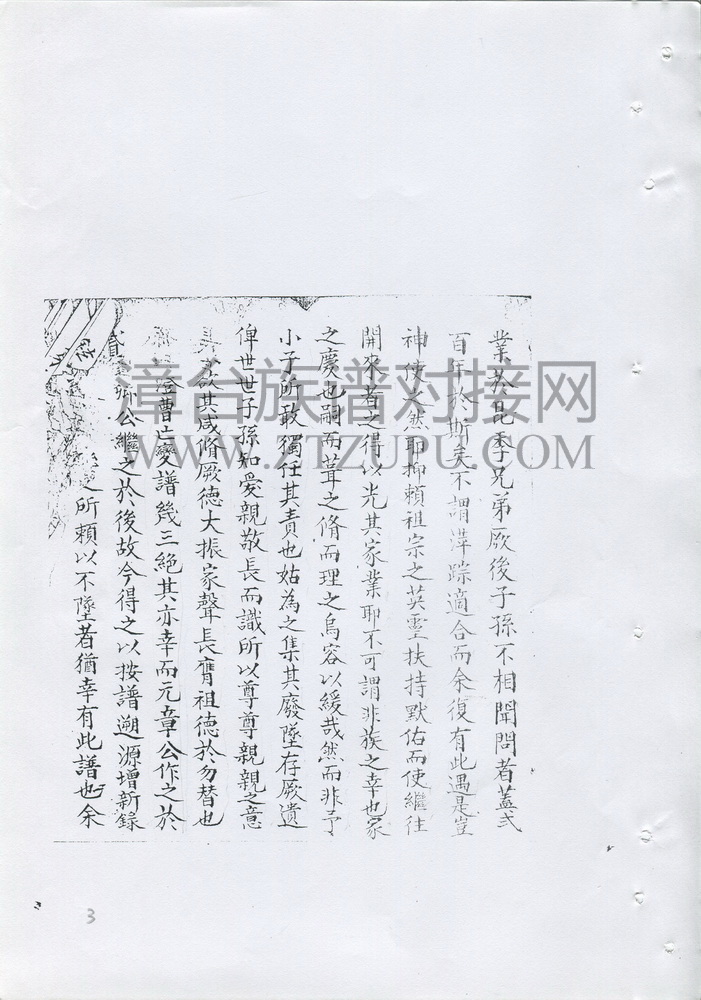 業於昆季兄弟厥後子孫不相聞問者蓋弍
百年於斯矣不謂萍踪適合而余復有此遇是豈
神使之然耶抑賴祖宗之英靈扶持默佑而使繼往
開來者之得以光其家業耶不可謂非族之幸也家
之慶也嗣而葺之脩而理之烏容以緩哉然而非予
小子所敢獨任其責也姑為之集其廢墜存厥遺
俾世世子孫知愛親敬長而識所以尊尊親親之意
欲其咸脩厥德大振家聲長膺祖德於勿替也
澄曹亡變譜幾三絕其亦幸而元章公作之於
卿公繼之於後故今得之以按譜遡源增新錄
所賴以不墜者猶幸有此譜也余
漳台族谱对接网
WWW.ZTZUPU.COM
3